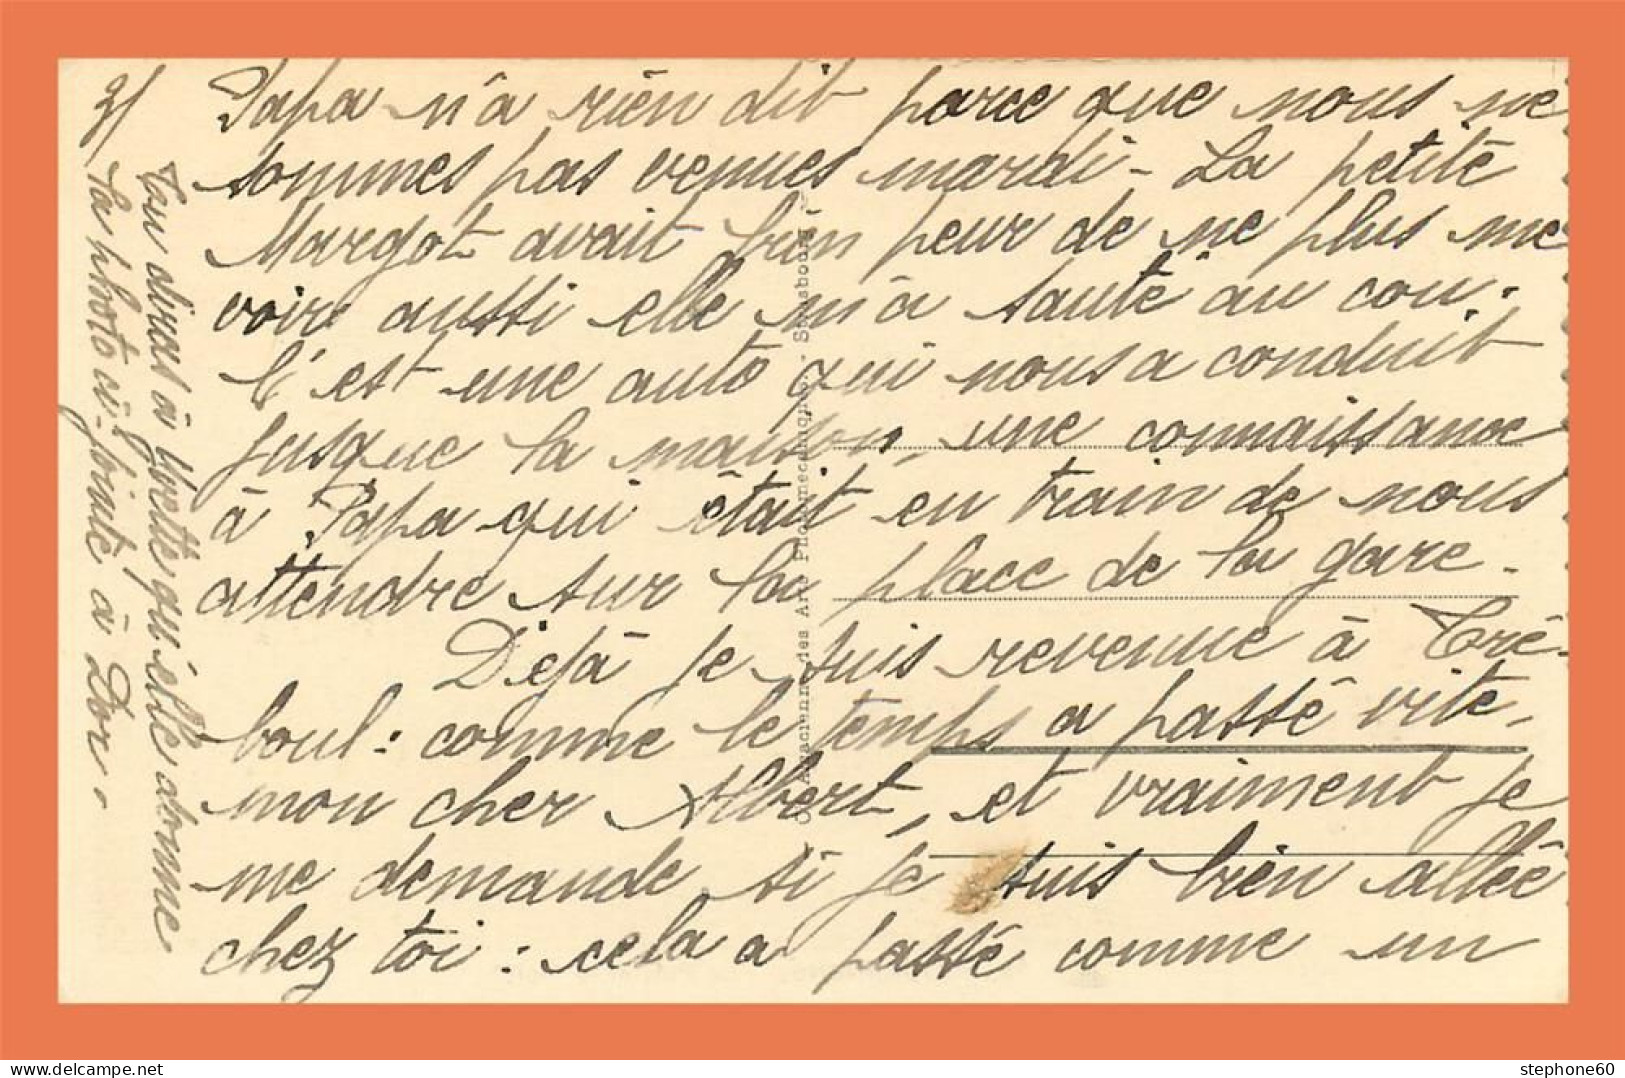 2/
Papa n'a rien dit parce que nous ne
sommes pas venues mardi - La petite
Margot avait bien peur de ne plus me
voir aussi elle m'a sauté au cou.
C'est une auto qui nous a conduit
jusque la maison, une connaissance
à Papa qui était en train de nous
attendre sur la place de la gare.
Déjà je suis revenue à Tré-
boul : comme le temps a passé vite,
mon cher Albert, et vraiment je
me demande si je suis bien allée
chez toi : cela a passé comme un
Tu diras à Yvette qu'elle donne
la photo ci-jointe à Dor.
Alsacienne des Arts Photomécaniques. - Strasbourg
stephone60